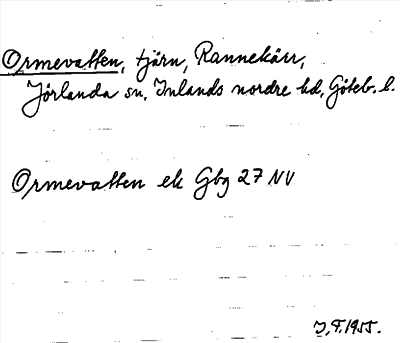 Ormevatten, tjärn, Rannekärr,
Jörlanda sn, Inlands nordre hd, Göteb. l.
Ormevatten ek Gbg 27 NV
J.F. 1955.